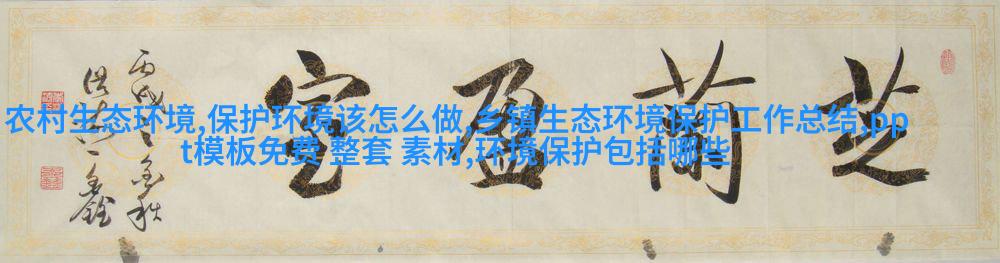 芝蘭盈室
丙戌之金秋
农村生态环境,保护环境该怎么做,乡镇生态环境保护工作总结,pp
t模板免费 整套 素材,环境保护包括哪些